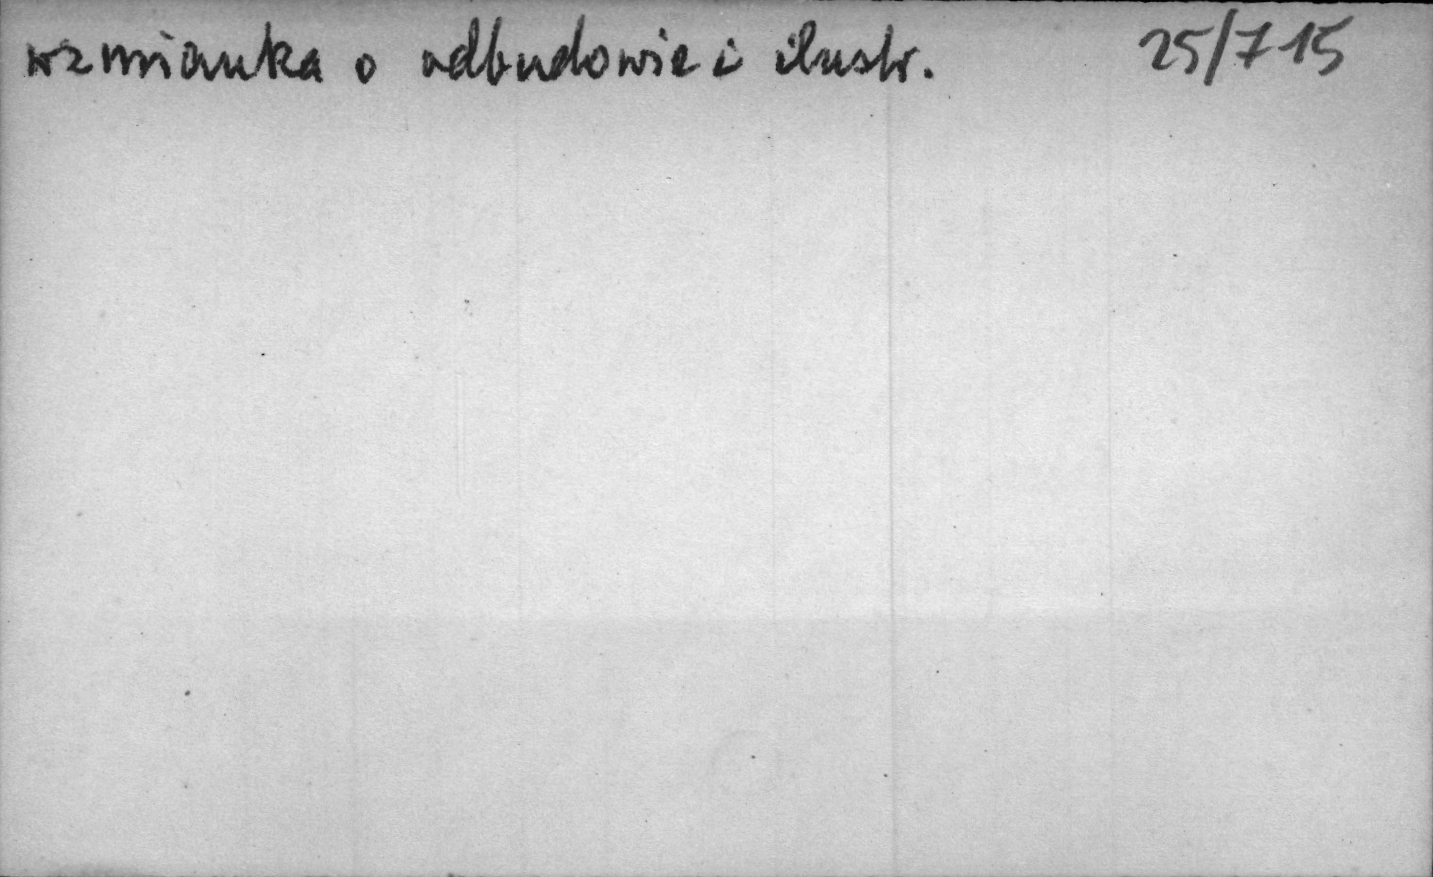 wzmianka o odbudowie i ilustr. 25/7 15